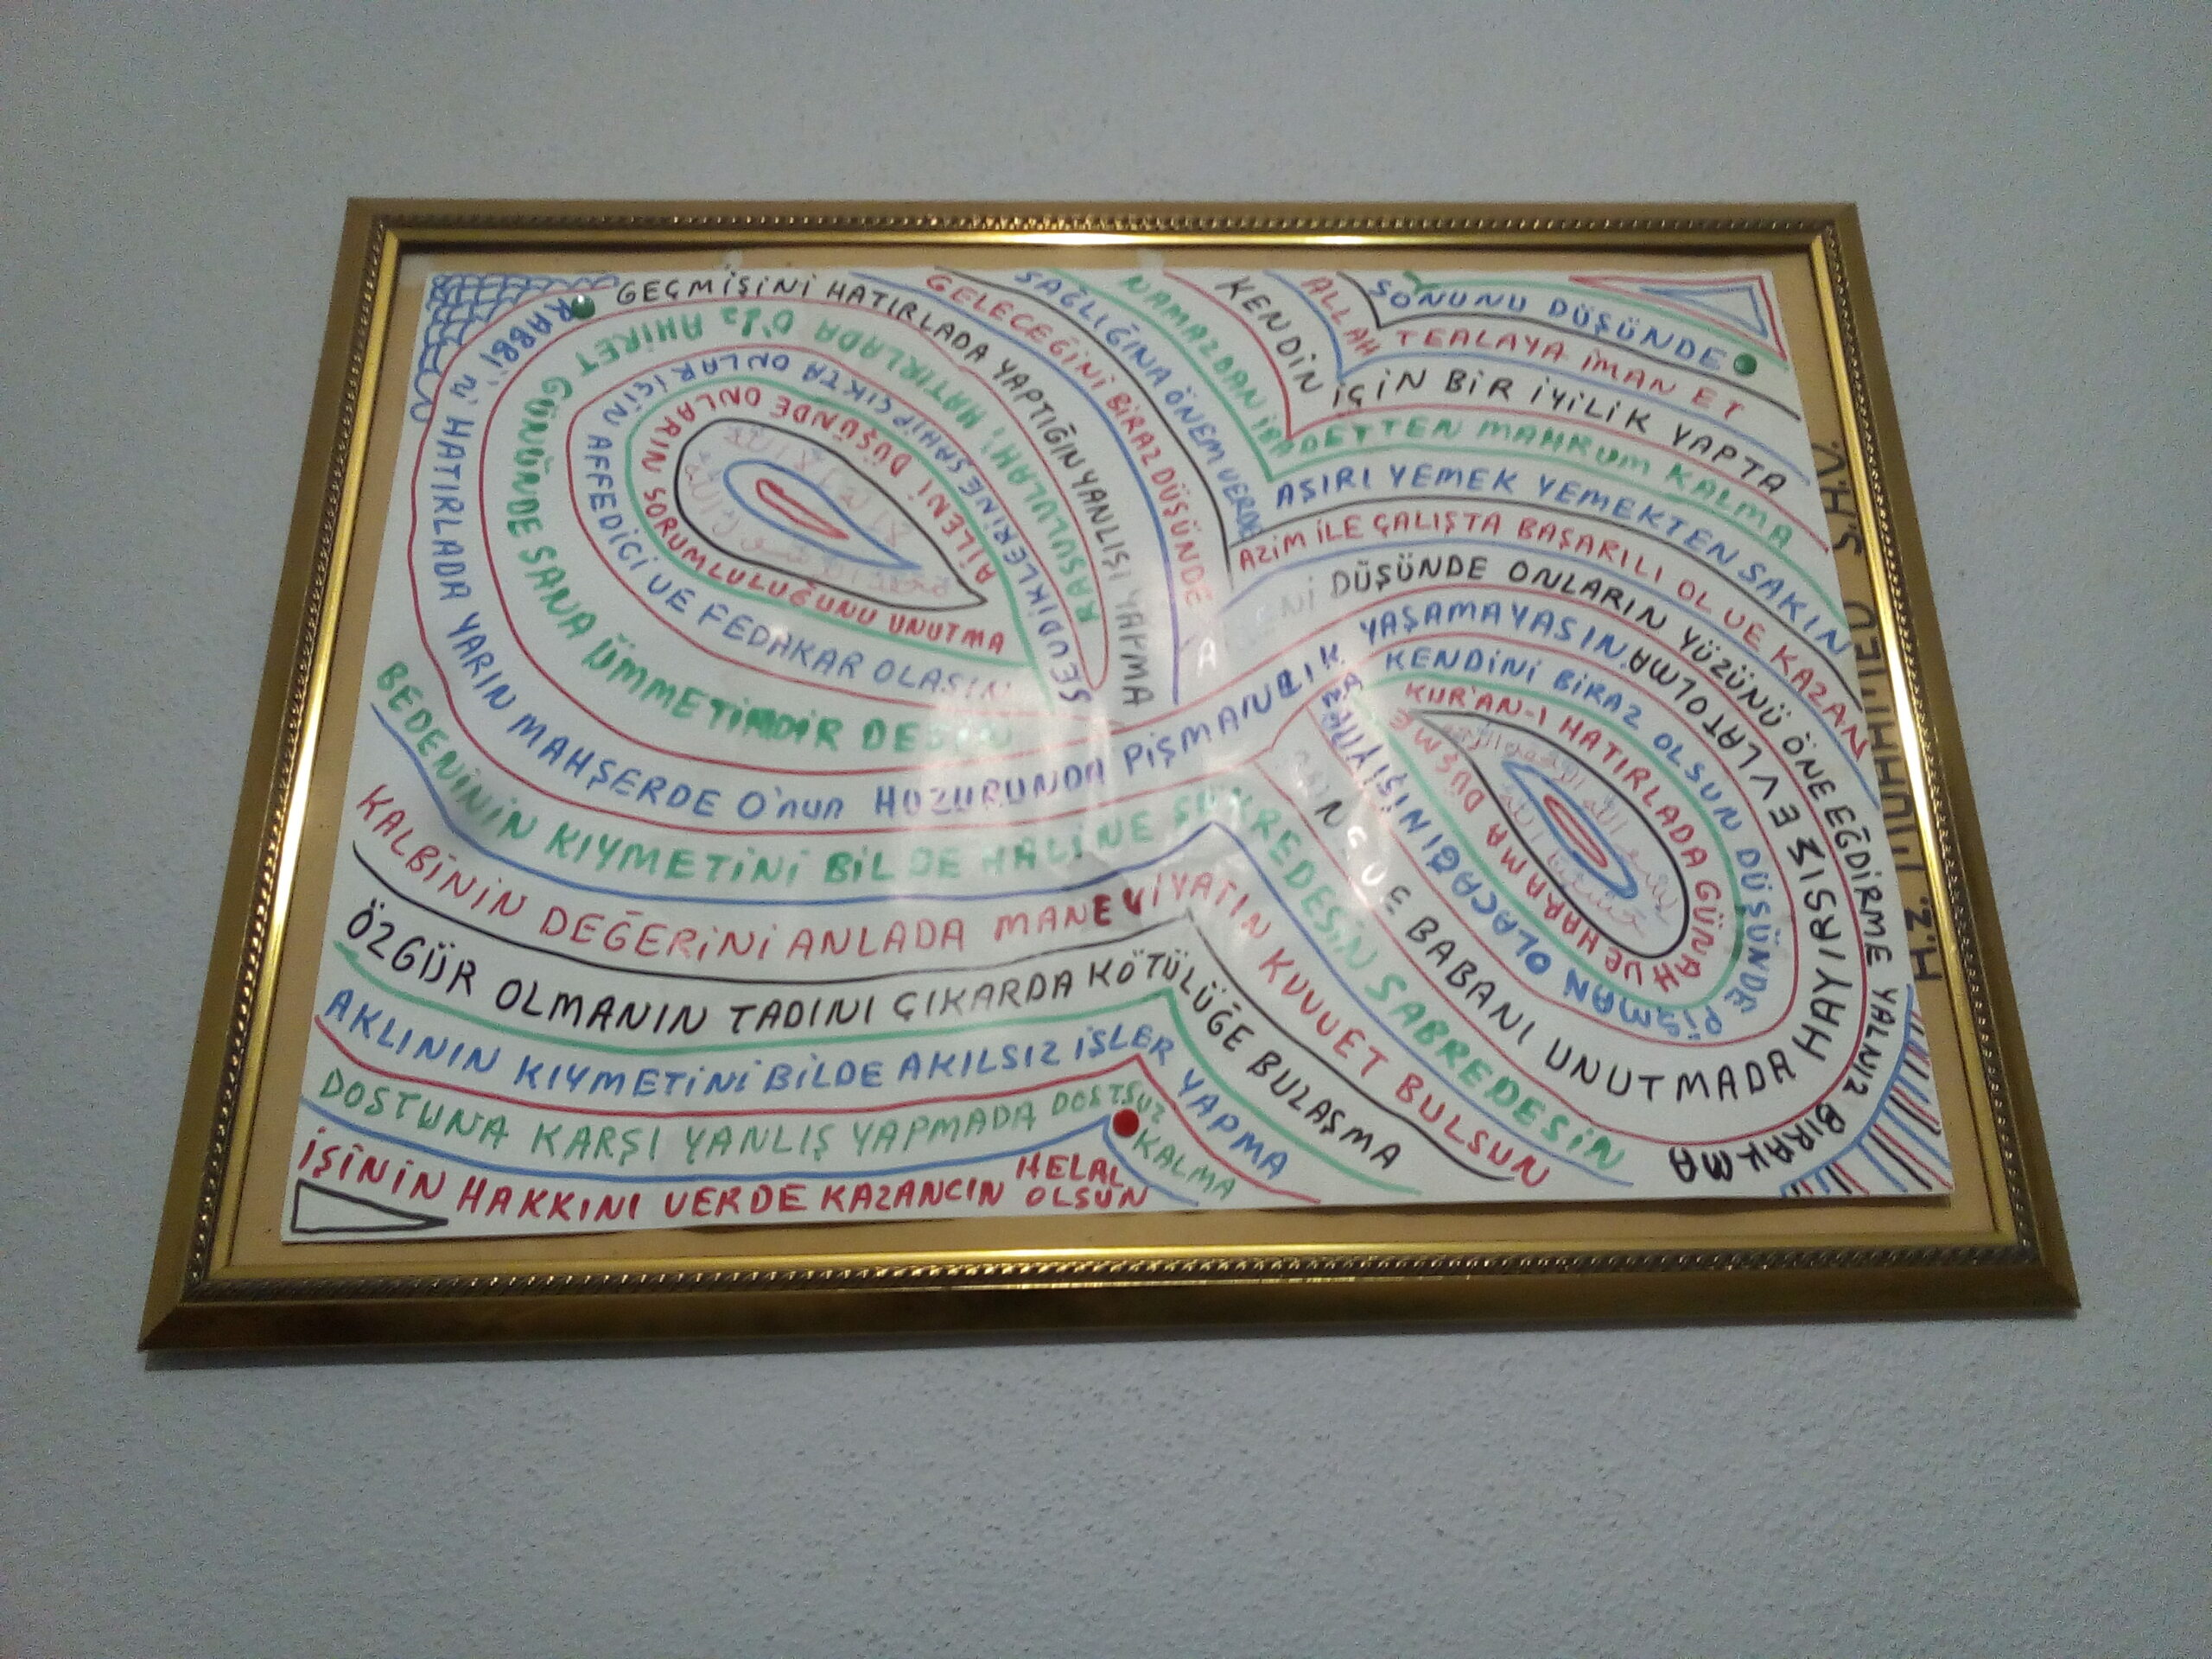 SONUNU DÜŞÜNDE
ALLAH TEALAYA İMAN ET
KENDİN İÇİN BİR İYİLİK YAPTA
NAMAZDAN İBADETTEN MAHRUM KALMA
SAĞLIĞINA ÖNEM VERDE AŞIRI YEMEK YEMEKTEN SAKIN
GELECEĞİNİ BİRAZ DÜŞÜNDE AZİM İLE ÇALIŞTA BAŞARILI OL VE KAZAN
GEÇMİŞİNİ HATIRLADA YAPTIĞIN YANLIŞI YAPMA
A Nİ DÜŞÜNDE ONLARIN YÜZÜNÜ ÖNE EĞDİRME YALNIZ BIRAKMA
RABBİ'Nİ HATIRLADA YARIN MAHŞERDE O'nun HUZURUNDA PİŞMANLIK YAŞAMAYASIN
RASULULLAH'I HATIRLADA O'da AHİRET GÜNÜNDE SANA ÜMMETİMDİR DESİN
SEVDİKLERİNE SAHİP ÇIKTA ONLAR İÇİN AFFEDİCİ VE FEDAKAR OLASIN
AİLENİ DÜŞÜNDE ONLARIN SORUMLULUĞUNU UNUTMA
KENDİNİ BİRAZ OLSUN DÜŞÜNDE PİŞMAN OLACAĞIN İŞİ YAPMA
KUR'AN-I HATIRLADA GÜNAH VE HARAMA DÜŞME
VE BABANI UNUTMADA HAYIRSIZ EVLAT OLMA
BEDENİNİN KIYMETİNİ BİL DE HALİNE ŞÜKREDESİN SABREDESİN
KALBİNİN DEĞERİNİ ANLADA MANEVİYATIN KUVVET BULSUN
ÖZGÜR OLMANIN TADINI ÇIKARDA KÖTÜLÜĞE BULAŞMA
AKLININ KIYMETİNİ BİLDE AKILSIZ İŞLER YAPMA
DOSTUNA KARŞI YANLIŞ YAPMADA DOSTSUZ KALMA
İŞİNİN HAKKINI VERDE KAZANCIN HELAL OLSUN